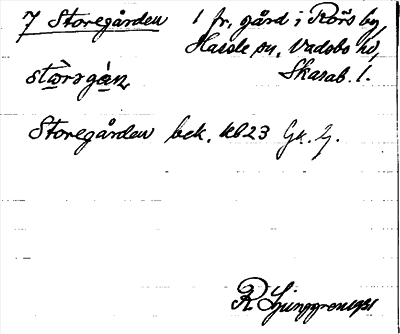 7 Storegården 1 fr. gård i Rörs by,
Hassle sn, Vadsbo hd,
Skarab. l.
stòrsgàn,
Storegården bek. kb 23 Gk. 2.
R Ljunggren 1931